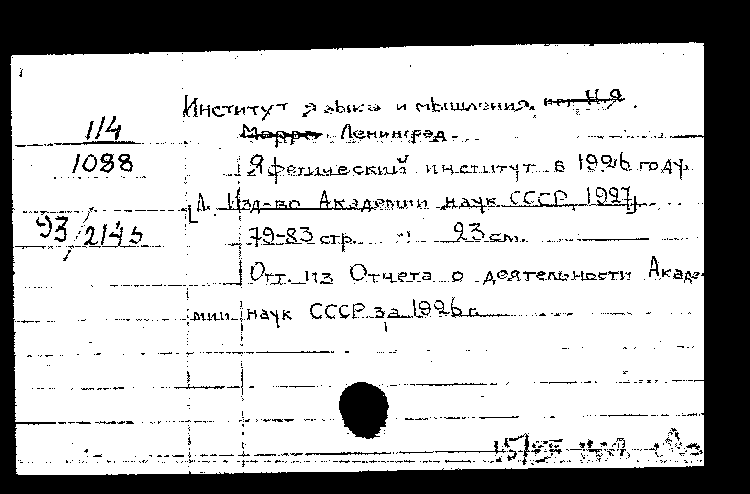 Институт языка и мышления, им. Н.Я.
114
Марра Ленинград.
1088
Яфетический институт в 1926 году.
[Л. Изд-во Академии наук СССР, 1927]
93/2145
79-83 стр. 23 см.
Отт. из Отчета о деятельности Акаде-
мии наук СССР за 1926 г.